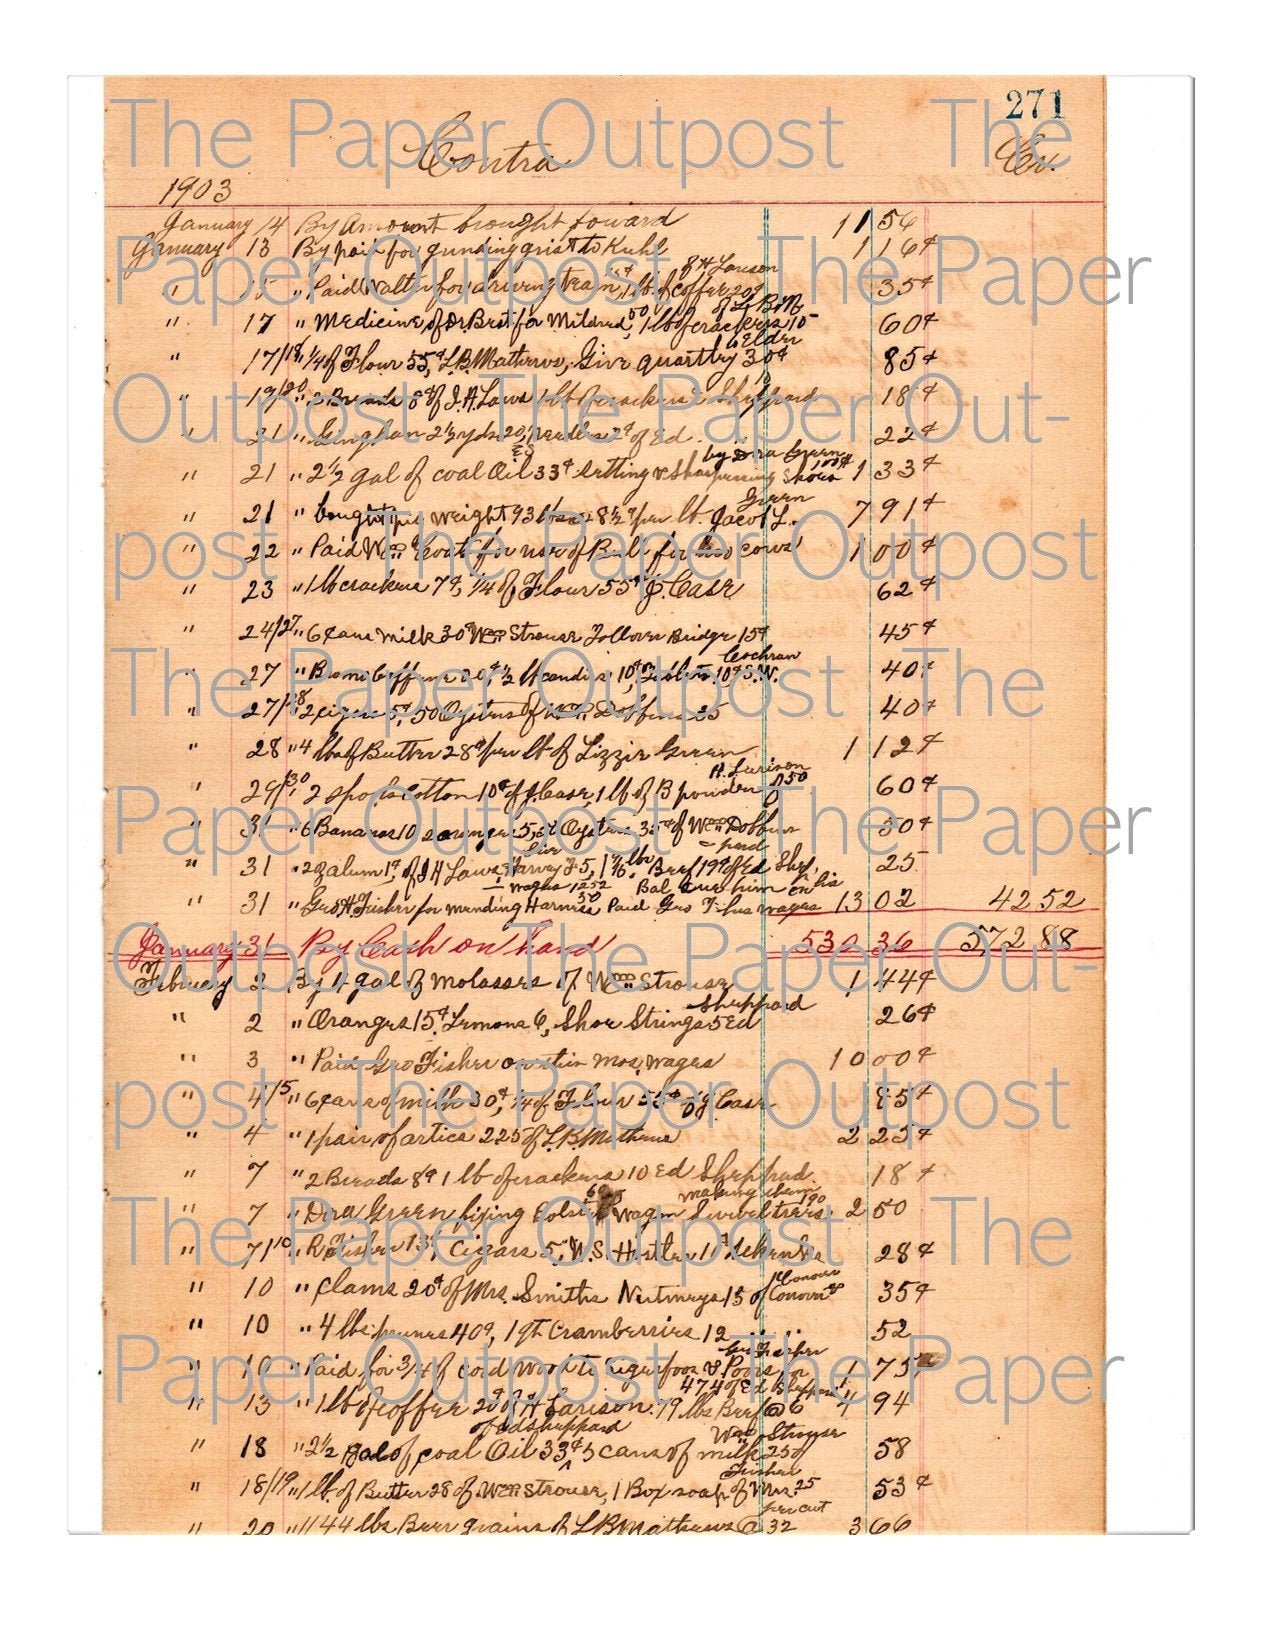 271
Contra Cr.
1903
January 14 By Amount brought foward 11 56
January 13 By paid for grinding grist to Kuhl 1 16¢
" 15 " Paid Walter for driving team, 1 lb of coffee 20¢ of H Larison 35¢
" 17 " Medicine of Dr. Best for Mildred, 50 1 lb of crackers 10 of L. B. M 60¢
" 17/18 " 1/4 of Flour 55¢ L.B. Mathews, Give quartly 30¢ to Elder 85¢
" 19/20 " 2 Breads 8¢ of J. H Laws 1 lb of crackers Sheppard 18¢
" 21 " Gingham 2 1/2 yds 20, needles 2¢ of Ed 22¢
" 21 " 2 1/2 gal of coal Oil 33¢ setting & sharpening shoes 1.00¢ by Dora Green 1 33¢
" 21 " bought pig weight 93 lbs 8 1/2¢ per lb. Jacob L. Green 7 91¢
" 22 " Paid Wm for use of Bull for two cows 1 00¢
" 23 " 1 lb crackers 7¢, 1/4 of Flour 55¢ J. Case 62¢
" 24/27 " 6 cans milk 30¢ Wm Strouse Tollover Bridge 15¢ 45¢
" 27 " Bromo Caffeine 20¢, 1/2 lb candies 10¢, Tablets 10¢ S. W. Cochran 40¢
" 27/28 " 2 cigars 5¢, 50 Oysters of Wm Dobbins 25 40¢
" 28 " 4 lbs of Butter 28¢ per lb of Lizzie Green 1 12¢
" 29/30 " 2 spools cotton 10¢ of J. Case, 1 lb of B powder 50 H. Larison 60¢
" 31 " 6 Bananas 10 2 oranges 5, Oysters 35¢ of Wm Dobbins 50¢
" 31 " 2 oz alum 1¢, of J H Laws, Harvey F 5, lbs Beef 19¢ of Ed Shep. 25
" 31 " Geo H Fisher for mending Harness 50 Paid Geo F his wages 13 02 42 52
wages 12 52 Bal due him on his
January 31 By Cash on hand 530 36 572 88
February 2 By 4 gal of Molasses of Wm Strouse 1 44¢
" 2 " Oranges 15¢, Lemons 6, Shoe Strings 5 Ed Sheppard 26¢
" 3 " Paid Geo Fisher on his mos, wages 10 00¢
" 4/5 " 6 cans of milk 30¢, 1/4 of Flour 55¢ of J Case 85¢
" 4 " 1 pair of artics 225 of L.B. Mathews 2 25¢
" 7 " 2 Breads 8¢ 1 lb of crackers 10 Ed Sheppard. 18¢
" 7 " Dora Green fixing Bolster 60 wagon Swiveltrees 190 making them 2 50
" 7/10 " R Fisher 13¢, Cigars 5, W. S. 28¢
" 10 " Clams 20¢ of Mrs. Smiths Nutmegs 15 of Conover 35¢
" 10 " 4 lbs prunes 40¢, 1 qt Cramberries 12 " " 52
" 10 " Paid for 3/4 of cord wood to Geo Fisher 1 75
" 13 " 1 lb of coffee 20¢ of H Larison. 79 lbs Beef @ 6 474 of Ed Sheppard 4 94
" 18 " 2 1/2 gal of coal Oil 33¢ of Ed Sheppard 5 cans of milk 25 of Wm Strouse 58
" 18/19 " 1 lb. of Butter 28 of Wm Strouse, 1 Box soap of Mrs. Fisher 25 53¢
" 20 " 1144 lbs Beer grains of L B Mathews @ 32 per cwt 3 66
The Paper Outpost The Paper Outpost The Paper Outpost